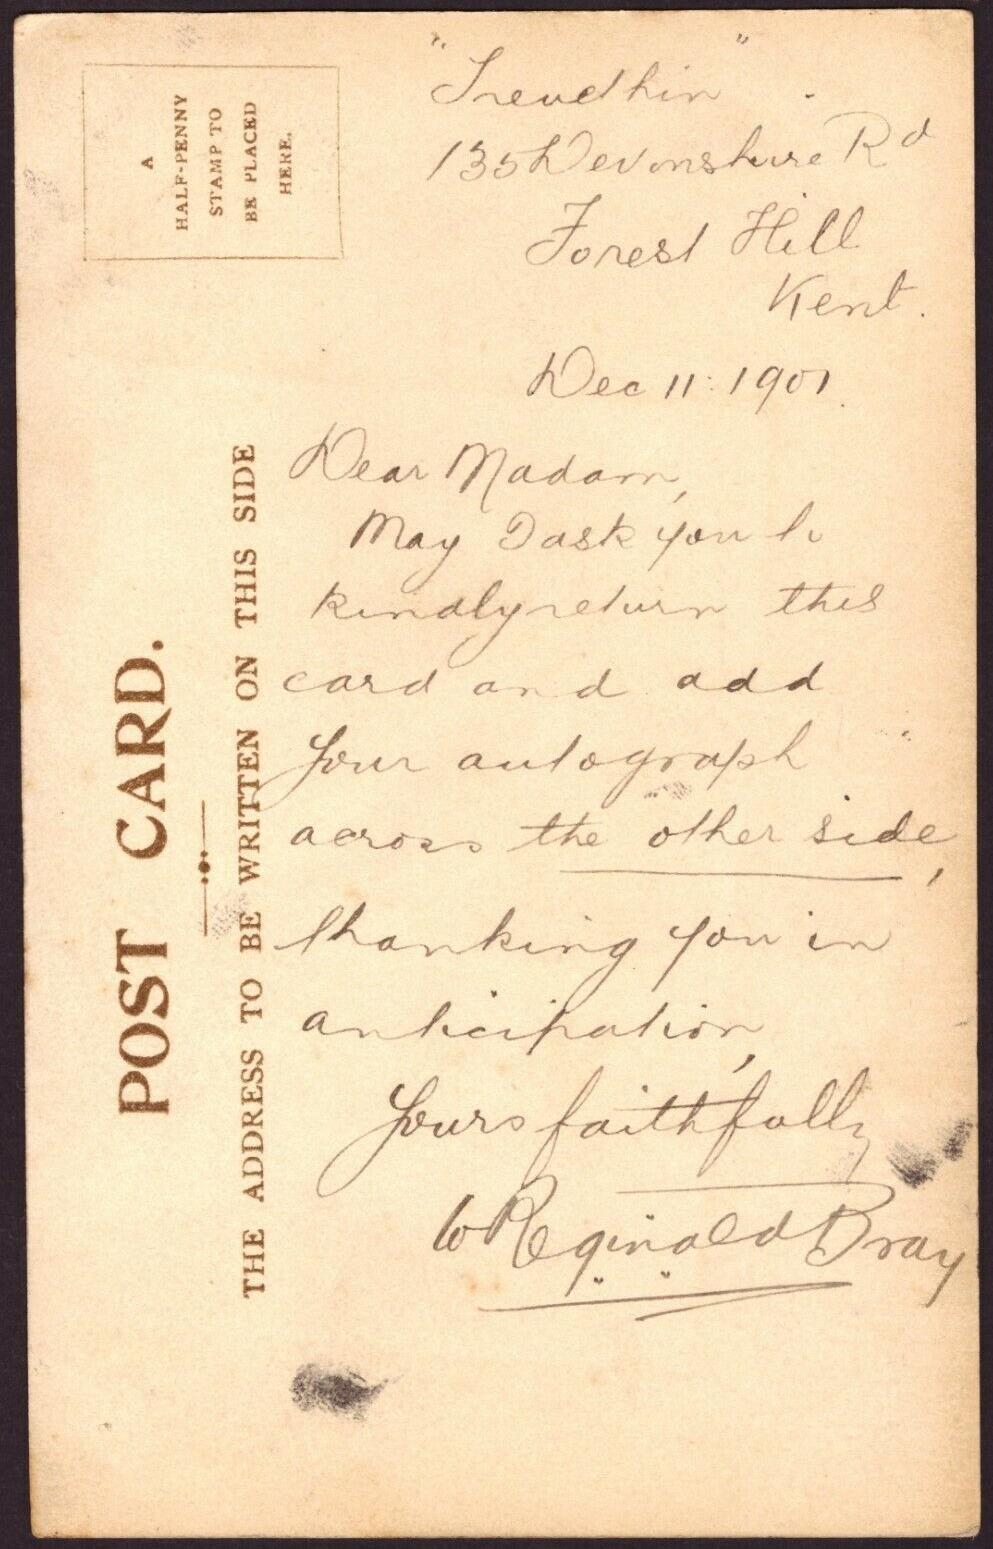 "Trevethin"
135 Devonshire Rd
Forest Hill
Kent.
Dec 11: 1901.
Dear Madam,
May I ask you to
kindly return this
card and add
your autograph
across the other side,
thanking you in
anticipation,
Yours faithfully
W Reginald Bray
A
HALF-PENNY
STAMP TO
BE PLACED
HERE.
POST CARD.
THE ADDRESS TO BE WRITTEN ON THIS SIDE